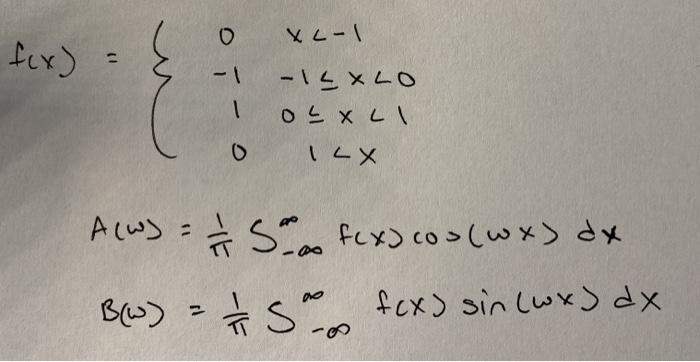 f(x) = { 0 x < -1
-1 -1 ≤ x < 0
1 0 ≤ x < 1
0 1 < x
A(ω) = 1/π ∫_{-∞}^{∞} f(x) cos(ωx) dx
B(ω) = 1/π ∫_{-∞}^{∞} f(x) sin(ωx) dx